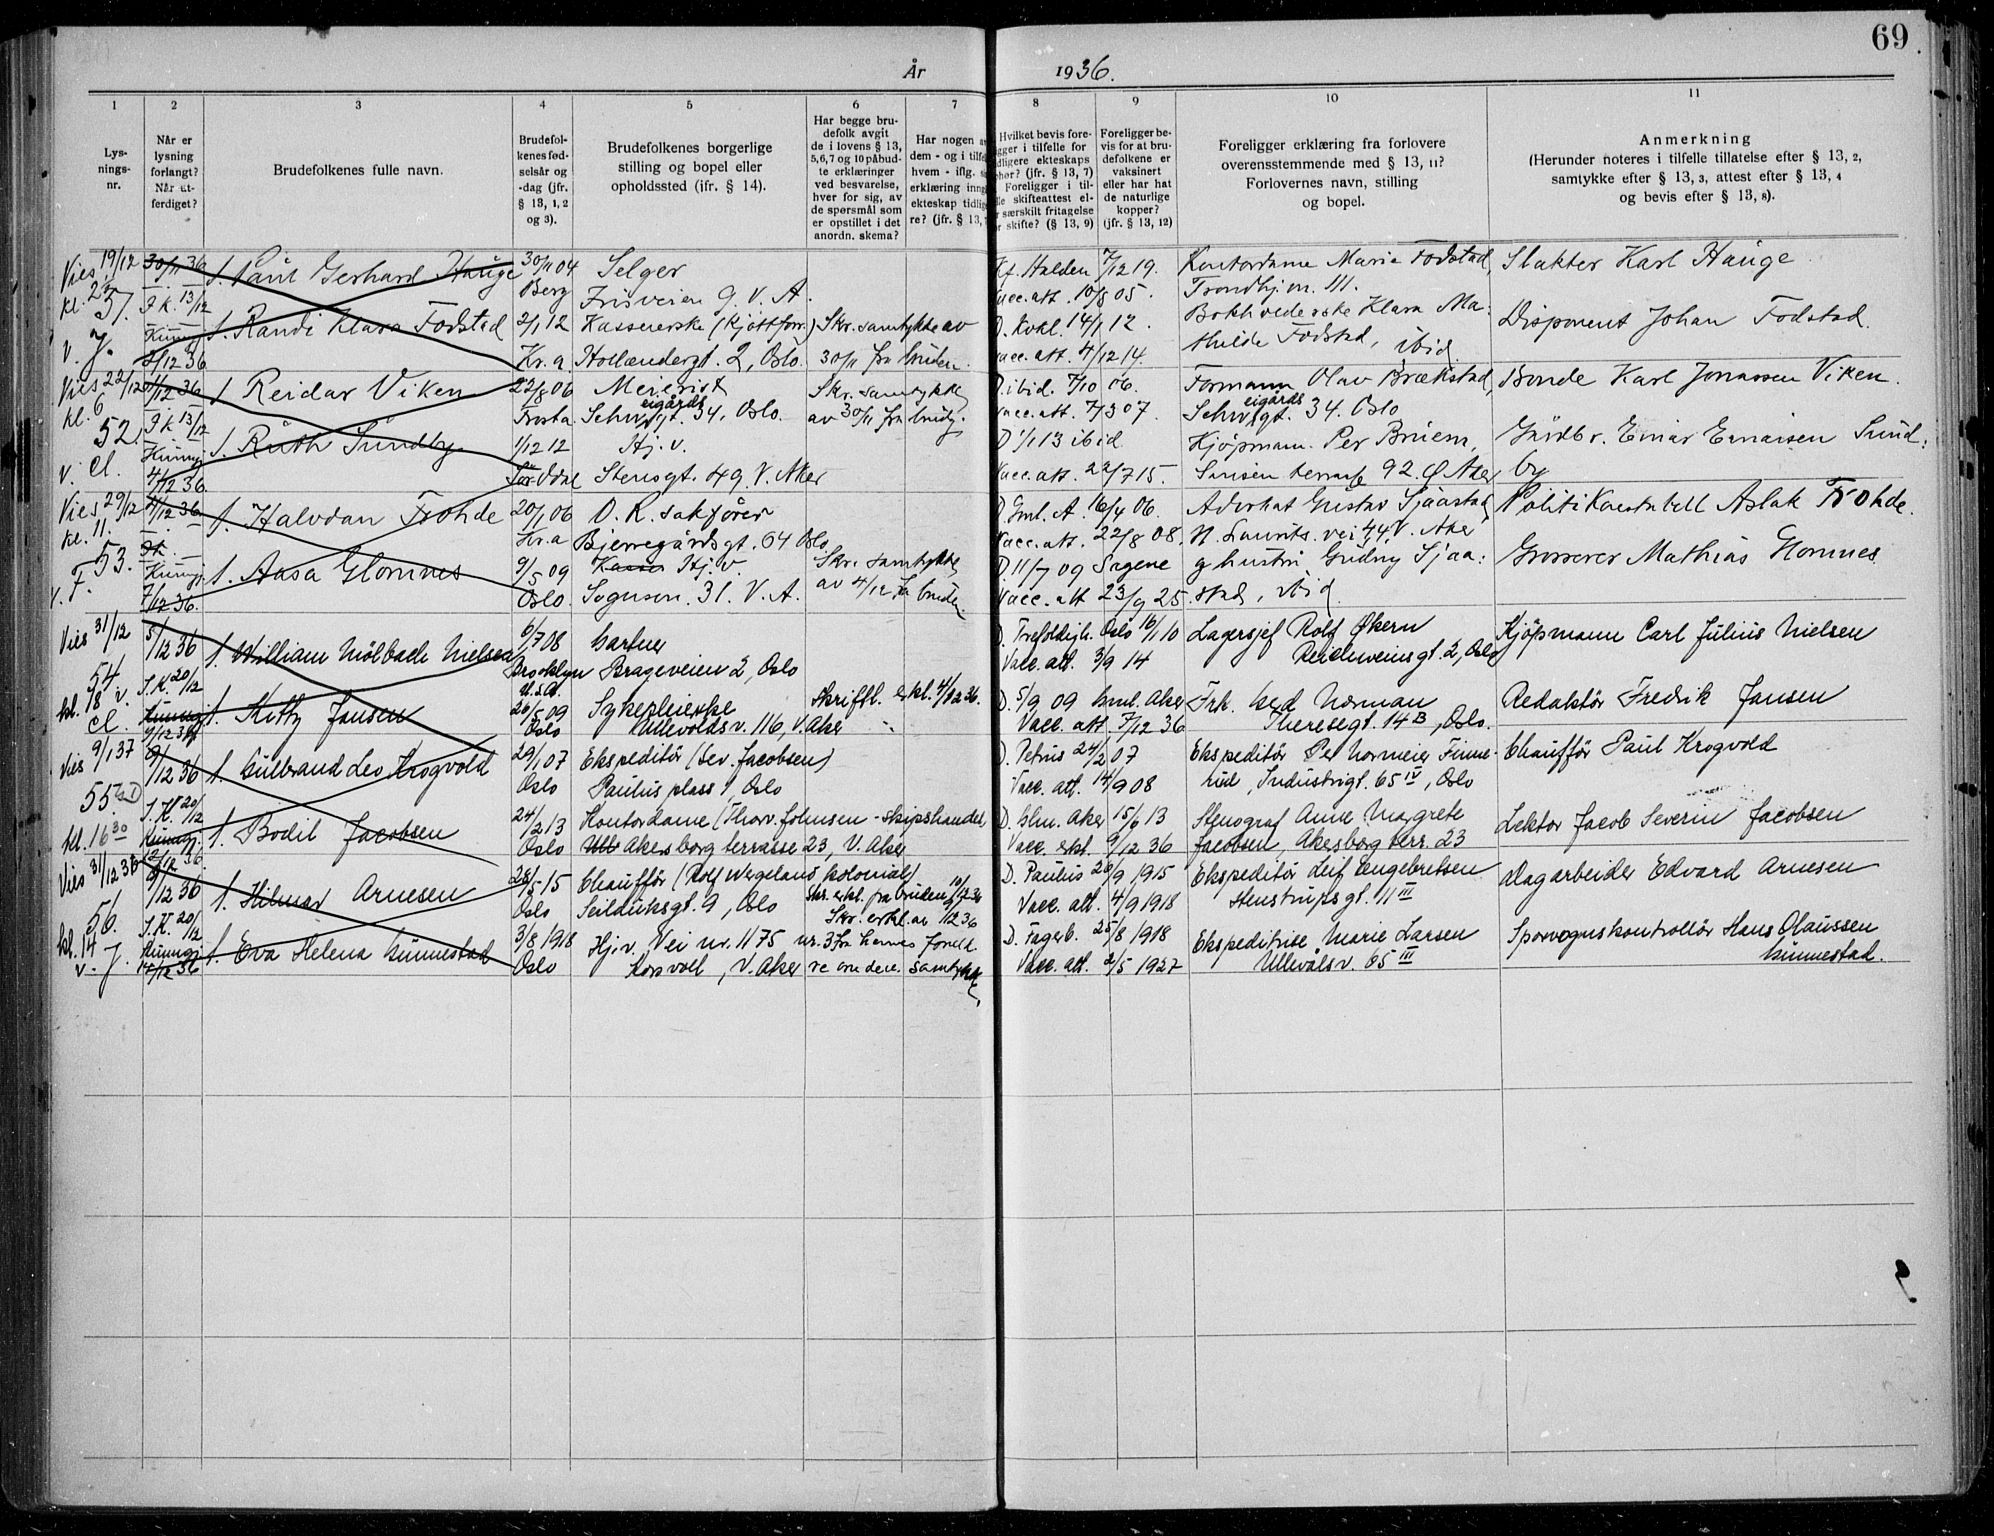 69
År 1936.
1 2 3 4 5 6 7 8 9 10 11
Lys-
nings-
nr.
Når er
lysning
forlangt?
Når ut-
ferdiget?
Brudefolkenes fulle navn.
Brudefol-
kenes fød-
selsår og
-dag (jfr.
§ 13, 1, 2
og 3).
Brudefolkenes borgerlige
stilling og bopel eller
opholdssted (jfr. § 14).
Har begge bru-
defolk avgit
de i lovens § 13,
5,6,7 og 10 påbud-
te erklæringer
ved besvarelse,
hver for sig, av
de spørsmål som
er opstillet i det
anordn. skema?
Har nogen a
dem - og i tilf
hvem - iflg. s
erklæring inng
ekteskap tidlig
re? (jfr. § 13,
Hvilket bevis fore-
gger i tilfelle for
dligere ekteskaps
hør? (jfr. § 13, 7)
Foreligger i til-
lle skifteattest el-
r særskilt fritagelse
r skifte? (§ 13, 9)
Foreligger be-
vis for at bru-
defolkene er
vaksinert
eller har hat
de naturlige
kopper?
(jfr. § 13, 12)
Foreligger erklæring fra forlovere
overensstemmende med § 13, 11?
Forlovernes navn, stilling
og bopel.
Anmerkning
(Herunder noteres i tilfelle tillatelse efter § 13, 2,
samtykke efter § 13, 3, attest efter § 13, 4
og bevis efter § 13, 8).
Vies 19/12 30/11 36 1. Paul Gerhard Hauge 30/11 04 Selger Kf. Halden 7/12 19. Kontordame Marie Fodstad, Slakter Karl Hauge
51. I k. 13/12 Berg Frisveien 9. V. A. vacc. att. 10/8 05. Trondhj.vn. 111.
1. Randi Klara Fodstad 2/1 12 Kassererske (Kjøttforr.) Skr. samtykke av D. Kvkl. 14/1 12. Bokholderske Klara Ma: Disponent Johan Fodstad.
V. J. 2/12 36 Kr. a Hollændergt. 2, Oslo. 30/11 fra bruden. vacc. att. 4/12 14. thilde Fodstad, ibid.
Vies 22/12 1/12 36 1. Reidar Viken 22/8 06 Meierist Skr. samtykke D. ibid. 7/10 06. Formann Olav Brækstad, Bonde Karl Jonassen Viken.
kl. 6 I k 13/12 Frosta Schweigårdsgt. 34, Oslo. av 30/11 fra brud. vacc. att. 7/3 07. Schweigårdsgt. 34. Oslo
52. 1. Ruth Sundby 1/12 12 Hj. v. D 1/1 13 ibid Kjøpmann. Per Bruem, Gårdbr. Einar Einarsen Sund:
V. Cl. 4/12 36. Sør Odal Stensgt. 49 V. Aker Vacc. att. 22/7 15. 92 Ø Aker by
Vies 29/12 4/12 36. 1. Halvdan Frohde 20/1 06 O. R. sakfører D. Gml. A. 16/4 06. Advokat Gustav Sjaastad Politikonstabell Aslak Frohde.
kl. 11. Kr. a Bjerregårdsgt. 64 Oslo Vacc. att. 22/8 08. N. Laurits. vei 44 V. Aker
53. 1. Aasa Glomnes 9/5 09 Hj. v. Skr. samtykke D. 11/7 09 Sagene g hustru Gudny Sjaa: Grosserer Mathias Glomnes
V. F. 7/12 36. Oslo. Sognsvn. 31. V. A. av 4/12 fra bruden Vacc. att 23/9 25. stad, ibid.
Vies 31/12 5/12 36 1. William Mölbach Nielsen 6/7 08 Gartner D. Trefoldigh. Oslo 16/1 10 Lagersjef Rolf Økern Kjøpmann Carl Julius Nielsen
54 I. K. 20/12 Brooklyn Brageveien 2, Oslo Vacc. att. 3/9 14 Reichweinsgt. 2, Oslo
kl. 18 v. U.S.A.
1. Kitty Jansen 26/5 09 Sykepleierske Skriftl. erkl. 4/12 36. D. 5/9 09 Gml. Aker Frk. Norman Redaktör Fredrik Jansen
Cl. 9/12 36 Oslo Ullevoldsv. 116, V. Aker Vacc. att. 7/12 36 Theresegt. 14 B, Oslo.
Vies 9/1 37 9/12 36 1. Gulbrand Leo Krogvold 29/1 07 Ekspeditör (Sev. Jacobsen) D. Petrus 24/2 07 Ekspeditör Per Normeier Finne- Chauffør Paul Krogvold
55. I. K. 20/12 Oslo Paulus plass 1 Oslo Vacc. att. 14/9 08 rud, Industrigt. 65 IV, Oslo
kl. 16 30 1. Bodil Jacobsen 24/2 13 Kontordame (Thorv. Johnsen - skipshandel) D. Glm. Aker 15/6 13 Stenograf Anne Margrete Lektor Jacob Severin Jacobsen
12/12 36. Oslo Akersborg terrasse 23, V. Aker Vacc. erkl. 9/12 36 Jacobsen, Akersborg terr. 23
Vies 31/12 36 9/12 36 1. Hilmar Arnesen 28/5 15 Chauffør (Rolf Wergeland kolonial) D. Paulus 26/9 1915 Ekspeditör Leif Engebretsen Dagarbeider Edvard Arnesen
56. I. K. 20/12 Oslo Seilduksgt. 9, Oslo Skr. erkl. fra bruden 10/12 36 Vacc. att. 4/9 1918 Stenstrupsgt. 11 III
kl. 14 1. Eva Helena Gunnestad 3/8 1918 Hj.v. Vei nr. 1175 nr. 3 fra hennes foreld D. Fagerb. 25/8 1918 Ekspeditrise Marie Larsen Sporvognskontrollör Hans Olaussen
v. J. 11/12 36 Oslo Korsvoll, V. Aker samtykke Vacc. att. 2/5 1927 Ullevålsv. 65 III Gunnestad.